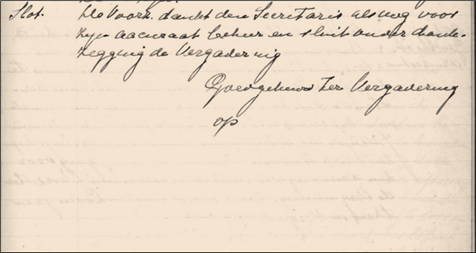 Slot. De Voorz. dankt den Secretaris alsnog voor
zijn accuraat beheer en sluit onder dank-
zegging de Vergadering
Goedgekeurd ter Vergadering
op